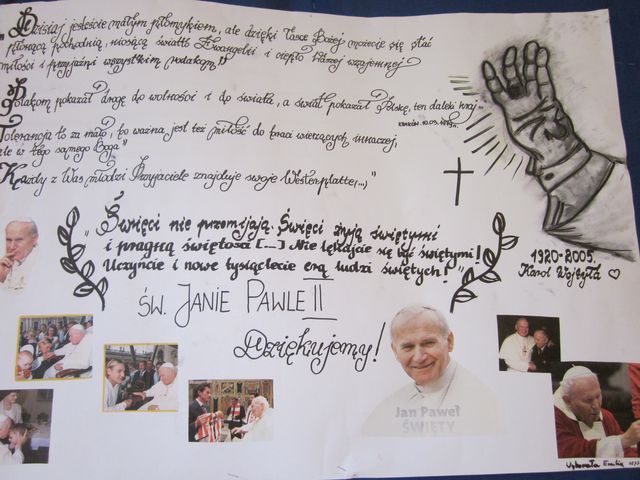 „Dzisiaj jesteście małym płomykiem, ale dzięki Łasce Bożej możecie się stać
płonącą pochodnią, niosącą światło Ewangelii i ciepło Waszej wzajemnej
miłości i przyjaźni wszystkim rodakom"
Polakom pokazał Drogę do wolności i do świata, a świat pokazał Polskę, ten daleki kraj...
Tolerancja to za mało, bo ważna jest też miłość do braci wierzących inaczej,
ale w tego samego Boga"
Każdy z Was młodzi Przyjaciele znajduje swoje Westerplatte(...)
„Święci nie przemijają. Święci żyją świętymi
i pragną świętości [...] Nie lękajcie się być świętymi!
Uczyńcie i nowe tysiąclecie erą ludzi świętych!"
1920-2005
Karol Wojtyła
ŚW. JANIE PAWLE II
Dziękujemy!
Jan Paweł
ŚWIĘTY
Wykonała Emilia